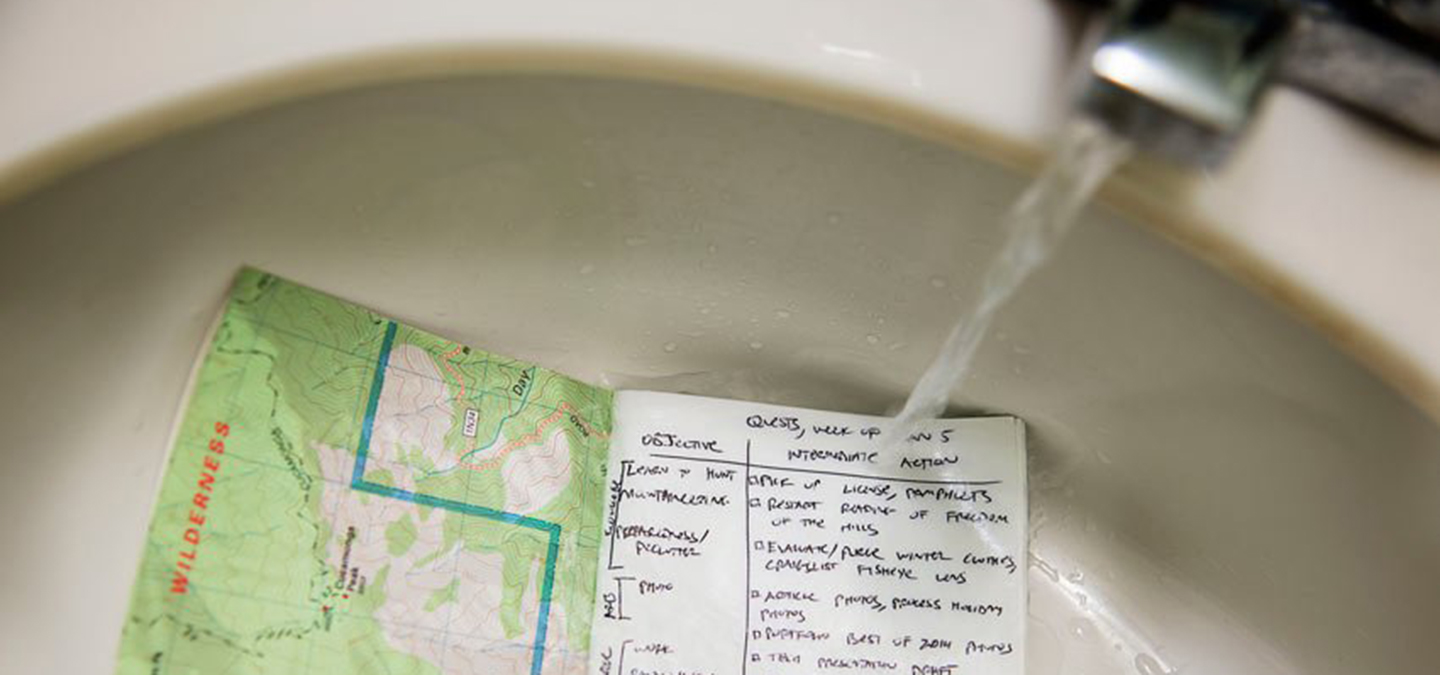 WILDERNESS
Day
ROAD
Peak
QUESTS, WEEK OF JAN 5
OBJECTIVE
INTERMEDIATE ACTION
LEARN TO HUNT
PICK UP LICENSE, PAMPHLETS
MOUNTAINEERING
RESTART READING OF FREEDOM
OF THE HILLS
PREPAREDNESS/
DECLUTTER
EVALUATE/PURGE WINTER CLOTHES,
CRAIGSLIST FISHEYE LENS
PHOTO
PHOTOS, PROCESS HOLIDAY
PHOTOS
BEST OF 2014 PHOTOS
WORK
PRESENTATION DRAFT